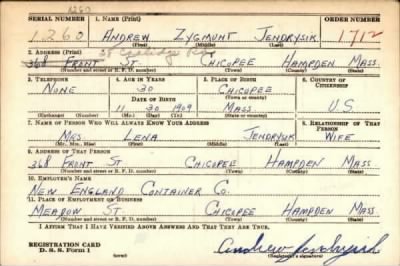 1260
SERIAL NUMBER 1. NAME (Print) ORDER NUMBER
1260 ANDREW ZYGMUNT JENDRYSIK 1712
(First) (Middle) (Last)
2. ADDRESS (Print) 38 Coolidge Rd.
368 FRONT ST. CHICOPEE HAMPDEN MASS
(Number and street or R. F. D. number) (Town) (County) (State)
3. TELEPHONE 4. AGE IN YEARS 5. PLACE OF BIRTH 6. COUNTRY OF CITIZENSHIP
NONE 30 CHICOPEE
DATE OF BIRTH (Town or county)
11 30 1909 MASS. U.S.
(Exchange) (Number) (Mo.) (Day) (Yr.) (State or country)
7. NAME OF PERSON WHO WILL ALWAYS KNOW YOUR ADDRESS 8. RELATIONSHIP OF THAT PERSON
MRS. LENA JENDRYSIK WIFE
(Mr., Mrs., Miss) (First) (Middle) (Last)
9. ADDRESS OF THAT PERSON
368 FRONT ST CHICOPEE HAMPDEN MASS
(Number and street or R. F. D. number) (Town) (County) (State)
10. EMPLOYER'S NAME
NEW ENGLAND CONTAINER CO.
11. PLACE OF EMPLOYMENT OR BUSINESS
MEADOW ST CHICOPEE HAMPDEN MASS
(Number and street or R. F. D. number) (Town) (County) (State)
I AFFIRM THAT I HAVE VERIFIED ABOVE ANSWERS AND THAT THEY ARE TRUE.
REGISTRATION CARD
D. S. S. Form 1
Andrew Jendrysik
(Registrant's signature)